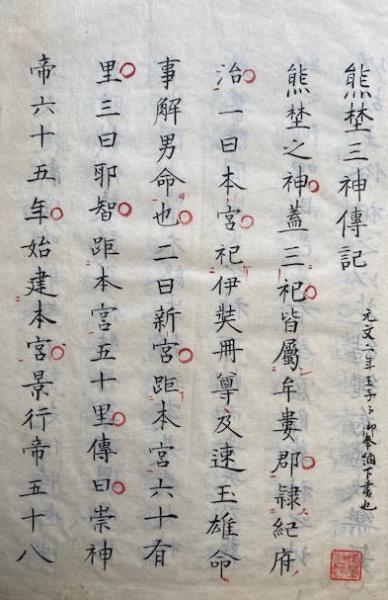 熊埜三神傳記
元文 年 御奉納下書也
熊埜之神蓋三祀皆屬牟婁郡隸紀府
治一曰本宮祀伊奘冊尊及速玉雄命
事解男命也二曰新宮距本宮六十有
里三曰耶智距本宮五十里傳曰崇神
帝六十五年始建本宮景行帝五十八